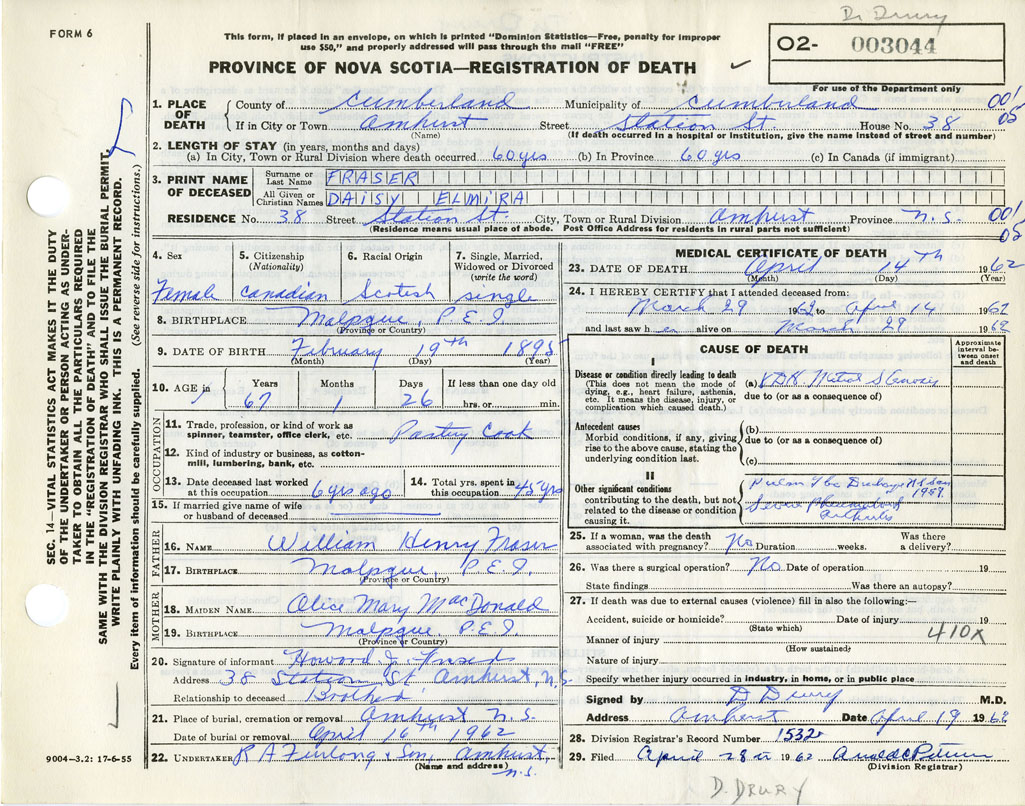 Dr Drury
FORM 6
This form, if placed in an envelope, on which is printed "Dominion Statistics—Free, penalty for improper
use $50," and properly addressed will pass through the mail "FREE"
O2- 003044
PROVINCE OF NOVA SCOTIA—REGISTRATION OF DEATH
For use of the Department only
1. PLACE OF DEATH
County of Cumberland Municipality of Cumberland 001
If in City or Town Amhurst Street Station St. House No. 38 05
(Name) (If death occurred in a hospital or institution, give the name instead of street and number)
2. LENGTH OF STAY (in years, months and days)
(a) In City, Town or Rural Division where death occurred 60 yrs (b) In Province 60 yrs (c) In Canada (if immigrant)
3. PRINT NAME OF DECEASED
Surname or Last Name FRASER
All Given or Christian Names DAISY ELMIRA
RESIDENCE No. 38 Street Station St. City, Town or Rural Division Amhurst Province N.S. 001
(Residence means usual place of abode. Post Office Address for residents in rural parts not sufficient) 05
4. Sex
Female
5. Citizenship
(Nationality)
Canadian
6. Racial Origin
Scotish
7. Single, Married,
Widowed or Divorced
(write the word)
single
8. BIRTHPLACE Malpque, P.E.I.
(Province or Country)
9. DATE OF BIRTH February 19th 1895
(Month) (Day) (Year)
10. AGE in
Years Months Days If less than one day old
67 1 26 hrs. or min.
OCCUPATION
11. Trade, profession, or kind of work as
spinner, teamster, office clerk, etc. Pastry Cook
12. Kind of industry or business, as cotton-
mill, lumbering, bank, etc.
13. Date deceased last worked
at this occupation 6 yrs ago
14. Total yrs. spent in
this occupation 45 yrs
15. If married give name of wife
or husband of deceased
FATHER
16. NAME William Henry Fraser
17. BIRTHPLACE Malpque, P.E.I.
(Province or Country)
MOTHER
18. MAIDEN NAME Alice Mary MacDonald
19. BIRTHPLACE Malpque, P.E.I.
(Province or Country)
20. Signature of informant Howard J.
Address 38 Station St Amhurst, N.S.
Relationship to deceased
21. Place of burial, cremation or removal Amhurst N.S.
Date of burial or removal April 16th 1962
22. UNDERTAKER R A Furlong & Son, Amhurst,
(Name and address) N.S.
MEDICAL CERTIFICATE OF DEATH
23. DATE OF DEATH April 14TH 1962
(Month) (Day) (Year)
24. I HEREBY CERTIFY that I attended deceased from:
March 29 1962 to April 14 1962
and last saw her alive on March 29 1962
CAUSE OF DEATH
Approximate
interval be-
tween onset
and death
I
Disease or condition directly leading to death
(This does not mean the mode of
dying, e.g., heart failure, asthenia,
etc. It means the disease, injury, or
complication which caused death.)
(a) Mitral Stenosis
due to (or as a consequence of)
Antecedent causes
Morbid conditions, if any, giving
rise to the above cause, stating the
underlying condition last.
(b)
due to (or as a consequence of)
(c)
II
Other significant conditions
contributing to the death, but not
related to the disease or condition
causing it.
1957
Severe Rheumatoid
Arthritis
25. If a woman, was the death
associated with pregnancy? No Duration weeks. Was there
a delivery?
26. Was there a surgical operation? No. Date of operation 19
State findings Was there an autopsy?
27. If death was due to external causes (violence) fill in also the following:—
Accident, suicide or homicide? Date of injury 19
(State which)
410x
Manner of injury
(How sustained)
Nature of injury
Specify whether injury occurred in industry, in home, or in public place
Signed by D Drury M.D.
Address Amherst Date April 19 1962
28. Division Registrar's Record Number 1532
29. Filed April 28 1962
(Division Registrar)
D. DRURY
9004—3.2: 17-6-55
SEC. 14—VITAL STATISTICS ACT MAKES IT THE DUTY
OF THE UNDERTAKER OR PERSON ACTING AS UNDER-
TAKER TO OBTAIN ALL THE PARTICULARS REQUIRED
IN THE "REGISTRATION OF DEATH" AND TO FILE THE
SAME WITH THE DIVISION REGISTRAR WHO SHALL ISSUE THE BURIAL PERMIT.
WRITE PLAINLY WITH UNFADING INK. THIS IS A PERMANENT RECORD.
Every item of information should be carefully supplied. (See reverse side for instructions.)